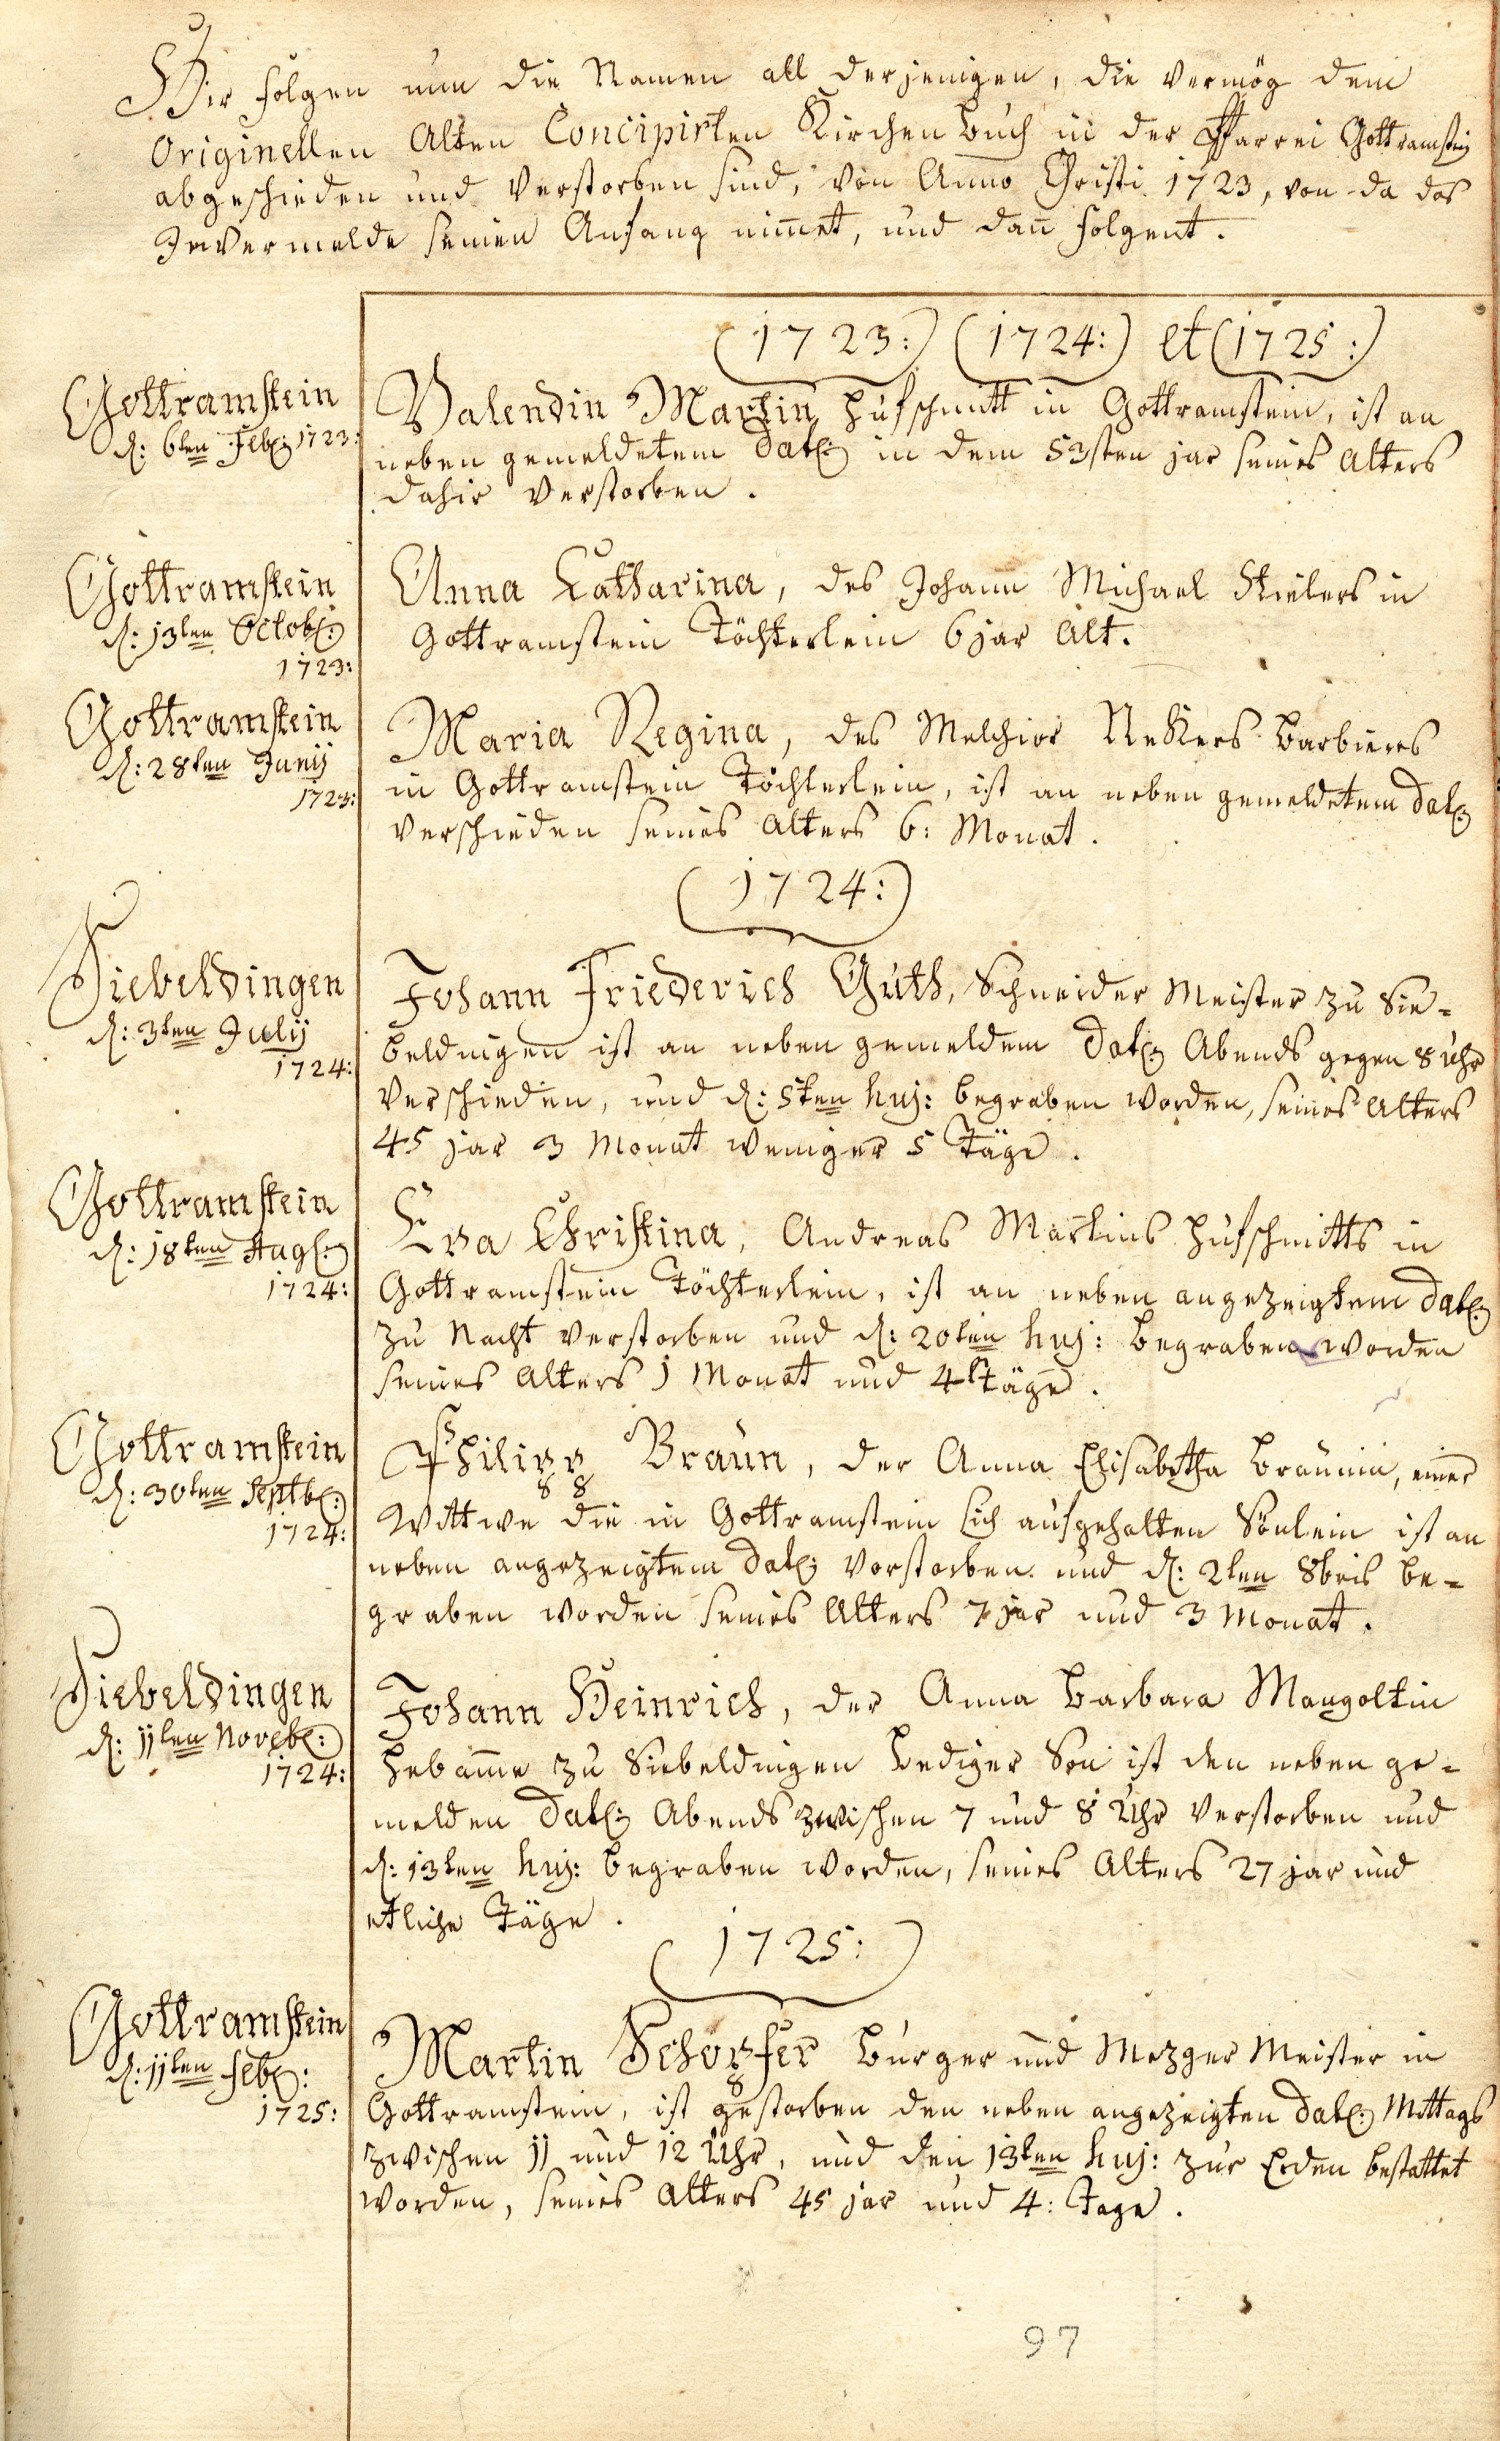 Hir folgen nun die Namen all derjenigen, die vermög dem
Originellen Alten Concipirten Kirchen Buch in der Pfarrei Gottramstein
abgeschieden und verstorben sind, von Anno Christi 1723, von da das
seinen Anfang nim̅et, und dan̅ folgent.
(1723:) (1724:) et (1725:)
Gottramstein
d: 6ten Feb: 1723:
Valendin Martin Hufschmitt in Gottramstein, ist an
neben gemeldetem Dat: in dem 53sten jar seines Alters
dahir verstorben.
Gottramstein
d: 13ten Octob:
1723:
Anna Catharina, des Johann Michael in
Gottramstein Töchterlein 6 jar Alt.
Gottramstein
d: 28ten Junij
1723:
Maria Regina, des Melchior Barbierers
in Gottramstein Töchterlein, ist an neben gemeldetem Dat:
verschieden seines Alters 6: Monat.
(1724:)
Siebeldingen
d: 3ten Julij
1724:
Johann Friederich Guth, Schneider Meister zu Sie-
beldingen ist an neben gemeldem Dat: Abends gegen 8 Uhr
verschieden, und d: 5ten huj: begraben worden, seines Alters
45 jar 3 Monat weniger 5 Täge.
Gottramstein
d: 18ten Aug:
1724:
Eva Christina, Andreas Martins Hufschmitts in
Gottramstein Töchterlein, ist an neben angezeigtem Dat:
zu Nacht verstorben und d: 20ten huj: begraben worden
seines Alters 1 Monat und 4 Täge.
Gottramstein
d: 30ten Septb:
1724:
Philipp Braun, der Anna Elisabetha Braunin, einer
Wittwe die in Gottramstein sich aufgehalten Sönlein ist an
neben angezeigtem Dat: verstorben und d: 2ten 8bris be-
graben worden seines Alters 7 jar und 3 Monat.
Siebeldingen
d: 11ten Noveb:
1724:
Johann Heinrich, der Anna Barbara Mangoltin
Hebam̅e zu Siebeldingen Lediger Son ist den neben ge-
melden Dat: Abends zwischen 7 und 8 Uhr verstorben und
d: 13ten huj: begraben worden, seines Alters 27 jar und
etliche Täge.
(1725:)
Gottramstein
d: 11ten Feb:
1725:
Martin Schopfer Burger und Mezger Meister in
Gottramstein, ist gestorben den neben angezeigten Dat: Mittags
zwischen 11 und 12 Uhr, und den 13ten huj: zur Erden bestattet
worden, seines Alters 45 jar und 4: Tage.
97